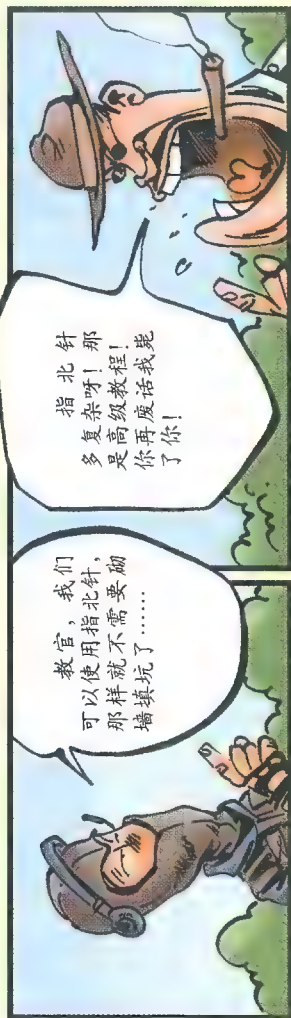 教官，我们
可以使用指北针，
那样就不需要砌
墙填坑了……
指北针
多复杂呀！那
是高级教程！
你再废话我毙
了你！